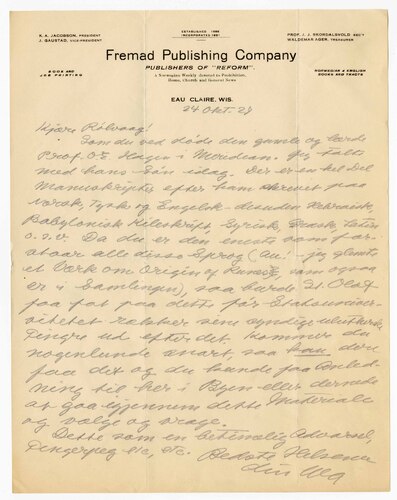 K. A. JACOBSON, PRESIDENT
J. GAUSTAD, VICE-PRESIDENT
ESTABLISHED 1886
INCORPORATED 1891
PROF. J. J. SKORDALSVOLD, SEC'Y
WALDEMAR AGER, TREASURER
Fremad Publishing Company
PUBLISHERS OF "REFORM".
BOOK AND
JOB PRINTING
A Norwegian Weekly devoted to Prohibition,
Home, Church and General News
NORWEGIAN & ENGLISH
BOOKS AND TRACTS
EAU CLAIRE, WIS.
24 Okt. 27
Kjære Rölvaag!
Som du ved döde den gamle og lærde
Prof. O.E. Hagen i Meridean. Jeg talte
med hans Sön idag. Der er en hel Del
Manuskripter efter ham skrevet paa
norsk, Tysk og Engelsk - desuden Hebraisk,
Babylonisk Kileskrift, Syrisk, Græsk, Latin
o.s.v. Da du er den eneste som for-
staar alle disse Sprog (Au! - jeg glemte
et Værk om Origin of Runes, som ogsaa
er i Samlingen), saa burde St. Olaf
faa fat paa dette för Statsuniver-
sitetet rækker sine syndige
Fingre ud efter det. Kommer du
nogenlunde snart, saa kan der
faa det og du kunde faa Anled-
ning til her i Byen eller dernede
at gaa igjennem dette Materiale
og vælge og vrage.
Dette som en betimelig Advarsel,
Fingerpeg etc, etc. Bedste Hilsener
din Ven